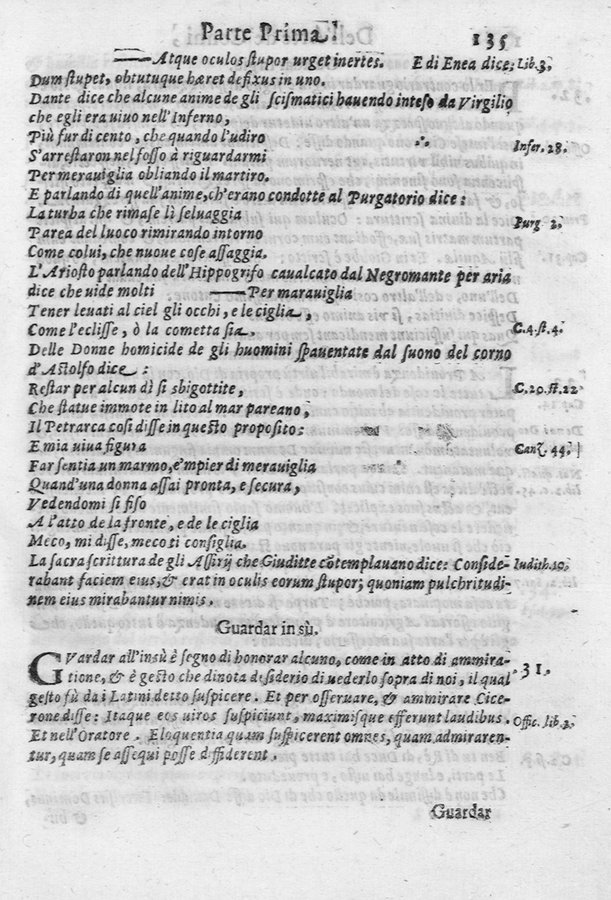 Parte Prima.
135
——Atque oculos stupor urget inertes. E di Enea dice; Lib. 3.
Dum stupet, obtutuque hæret defixus in uno.
Dante dice che alcune anime de gli scismatici hauendo inteso da Virgilio
che egli era uiuo nell'Inferno,
Più fur di cento, che quando l'udiro
Infer. 28.
S'arrestaron nel fosso à riguardarmi
Per merauiglia obliando il martiro.
E parlando di quell'anime, ch'erano condotte al Purgatorio dice:
La turba che rimase lì seluaggia
Purg. 2.
Parea del luoco rimirando intorno
Come colui, che nuoue cose assaggia.
L'Ariosto parlando dell'Hippogrifo caualcato dal Negromante per aria
dice che uide molti ——Per marauiglia
Tener leuati al ciel gli occhi, e le ciglia,
Come l'eclisse, ò la cometta sia.
C. 4. st. 4.
Delle Donne homicide de gli huomini spauentate dal suono del corno
d'Astolfo dice:
Restar per alcun dì si sbigottite,
C. 20. st. 22
Che statue immote in lito al mar pareano,
Il Petrarca così disse in questo proposito:
E mia uiua figura
Canz. 44.
Far sentia un marmo, e'mpier di merauiglia
Quand'una donna assai pronta, e secura,
Vedendomi si fiso
A l'atto de la fronte, e de le ciglia
Meco, mi disse, meco ti consiglia.
La sacra scrittura de gli Assirij che Giuditte cõtemplauano dice: Conside-
Iudith. 10.
rabant faciem eius, & erat in oculis eorum stupor; quoniam pulchritudi-
nem eius mirabantur nimis.
Guardar in sù.
GVardar all'insù è segno di honorar alcuno, come in atto di ammira-
tione, & è gesto che dinota desiderio di uederlo sopra di noi, il qual
31.
gesto fù da i Latini detto suspicere. Et per osseruare, & ammirare Cice-
rone disse: Itaque eos uiros suspiciunt, maximisque efferunt laudibus.
Offic. lib. 2.
Et nell'Oratore. Eloquentia quam suspicerent omnes, quam admiraren-
tur, quam se assequi posse diffiderent.
Guardar